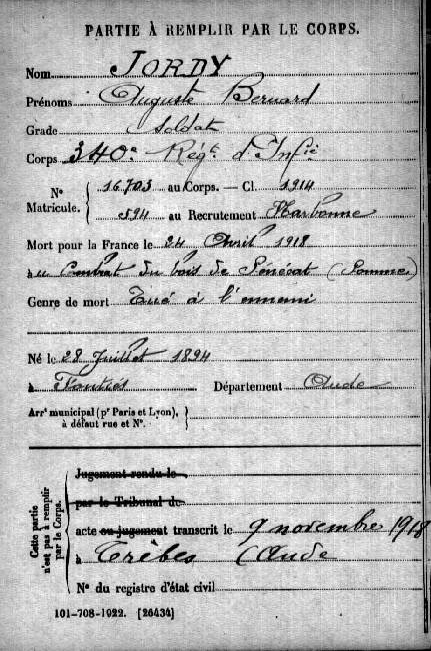 PARTIE À REMPLIR PAR LE CORPS.
Nom JORDY
Prénoms Auguste Bernard
Grade Soldat
Corps 340e Régt d'Infie
N° Matricule. 16703 au Corps. — Cl. 1914
594 au Recrutement Narbonne
Mort pour la France le 24 Avril 1918
au Combat du bois de Sénécat (Somme)
Genre de mort Tué à l'ennemi
Né le 28 Juillet 1894
à Département Aude
Arrt municipal (pr Paris et Lyon),
à défaut rue et N°.
Cette partie n'est pas à remplir par le Corps.
Jugement rendu le
par le Tribunal de
acte ou jugement transcrit le 9 novembre 1918
à Trèbes (Aude
N° du registre d'état civil
101-708-1922. [26434]